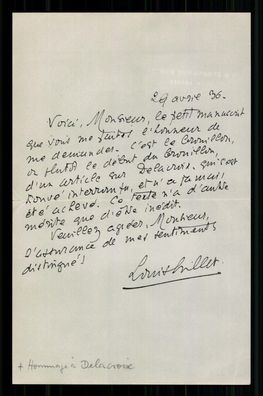 29 avril 36.
Voici, Monsieur, le petit manuscrit
que vous me faites l'honneur de
me demander. C'est le brouillon,
ou plutôt le début du brouillon,
d'un article sur Delacroix, qui s'est
trouvé interrompu, et n'a jamais
été achevé. Ce texte n'a d'autre
mérite que d'être inédit.
Veuillez agréer, Monsieur,
l'assurance de mes sentiments
distingués
Louis Gillet
+ Hommage à Delacroix